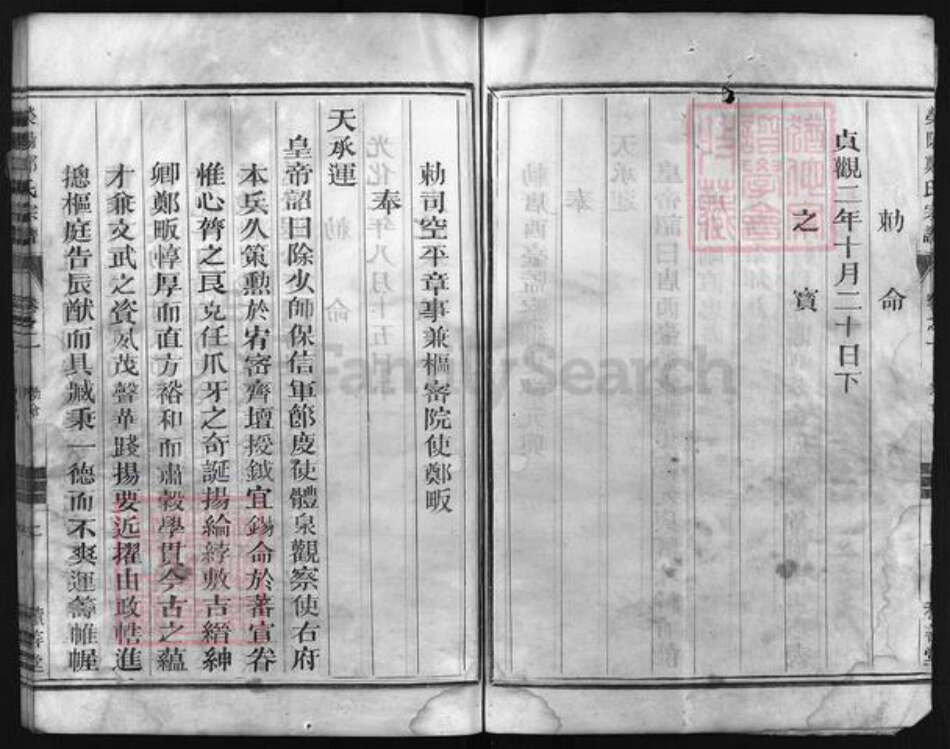 勅命
貞觀二年十月二十日下
之寶
勅司空平章事兼樞密院使鄭畋
奉
天承運
皇帝詔曰除少師保信軍節度使體泉觀察使右府
本兵久策勲於宥密齊壇授鉞宜錫命於蕃宣眷
惟心膂之良克任爪牙之奇誕揚綸綍敷吉縉紳
卿鄭畋惇厚而直方裕和而肅毅學貫今古之蘊
才兼文武之資夙茂聲華踐揚要近擢由政
進
摠樞庭告辰猷而具臧秉一德而不爽運籌帷幄
榮陽鄭氏宗譜
FamilySearch